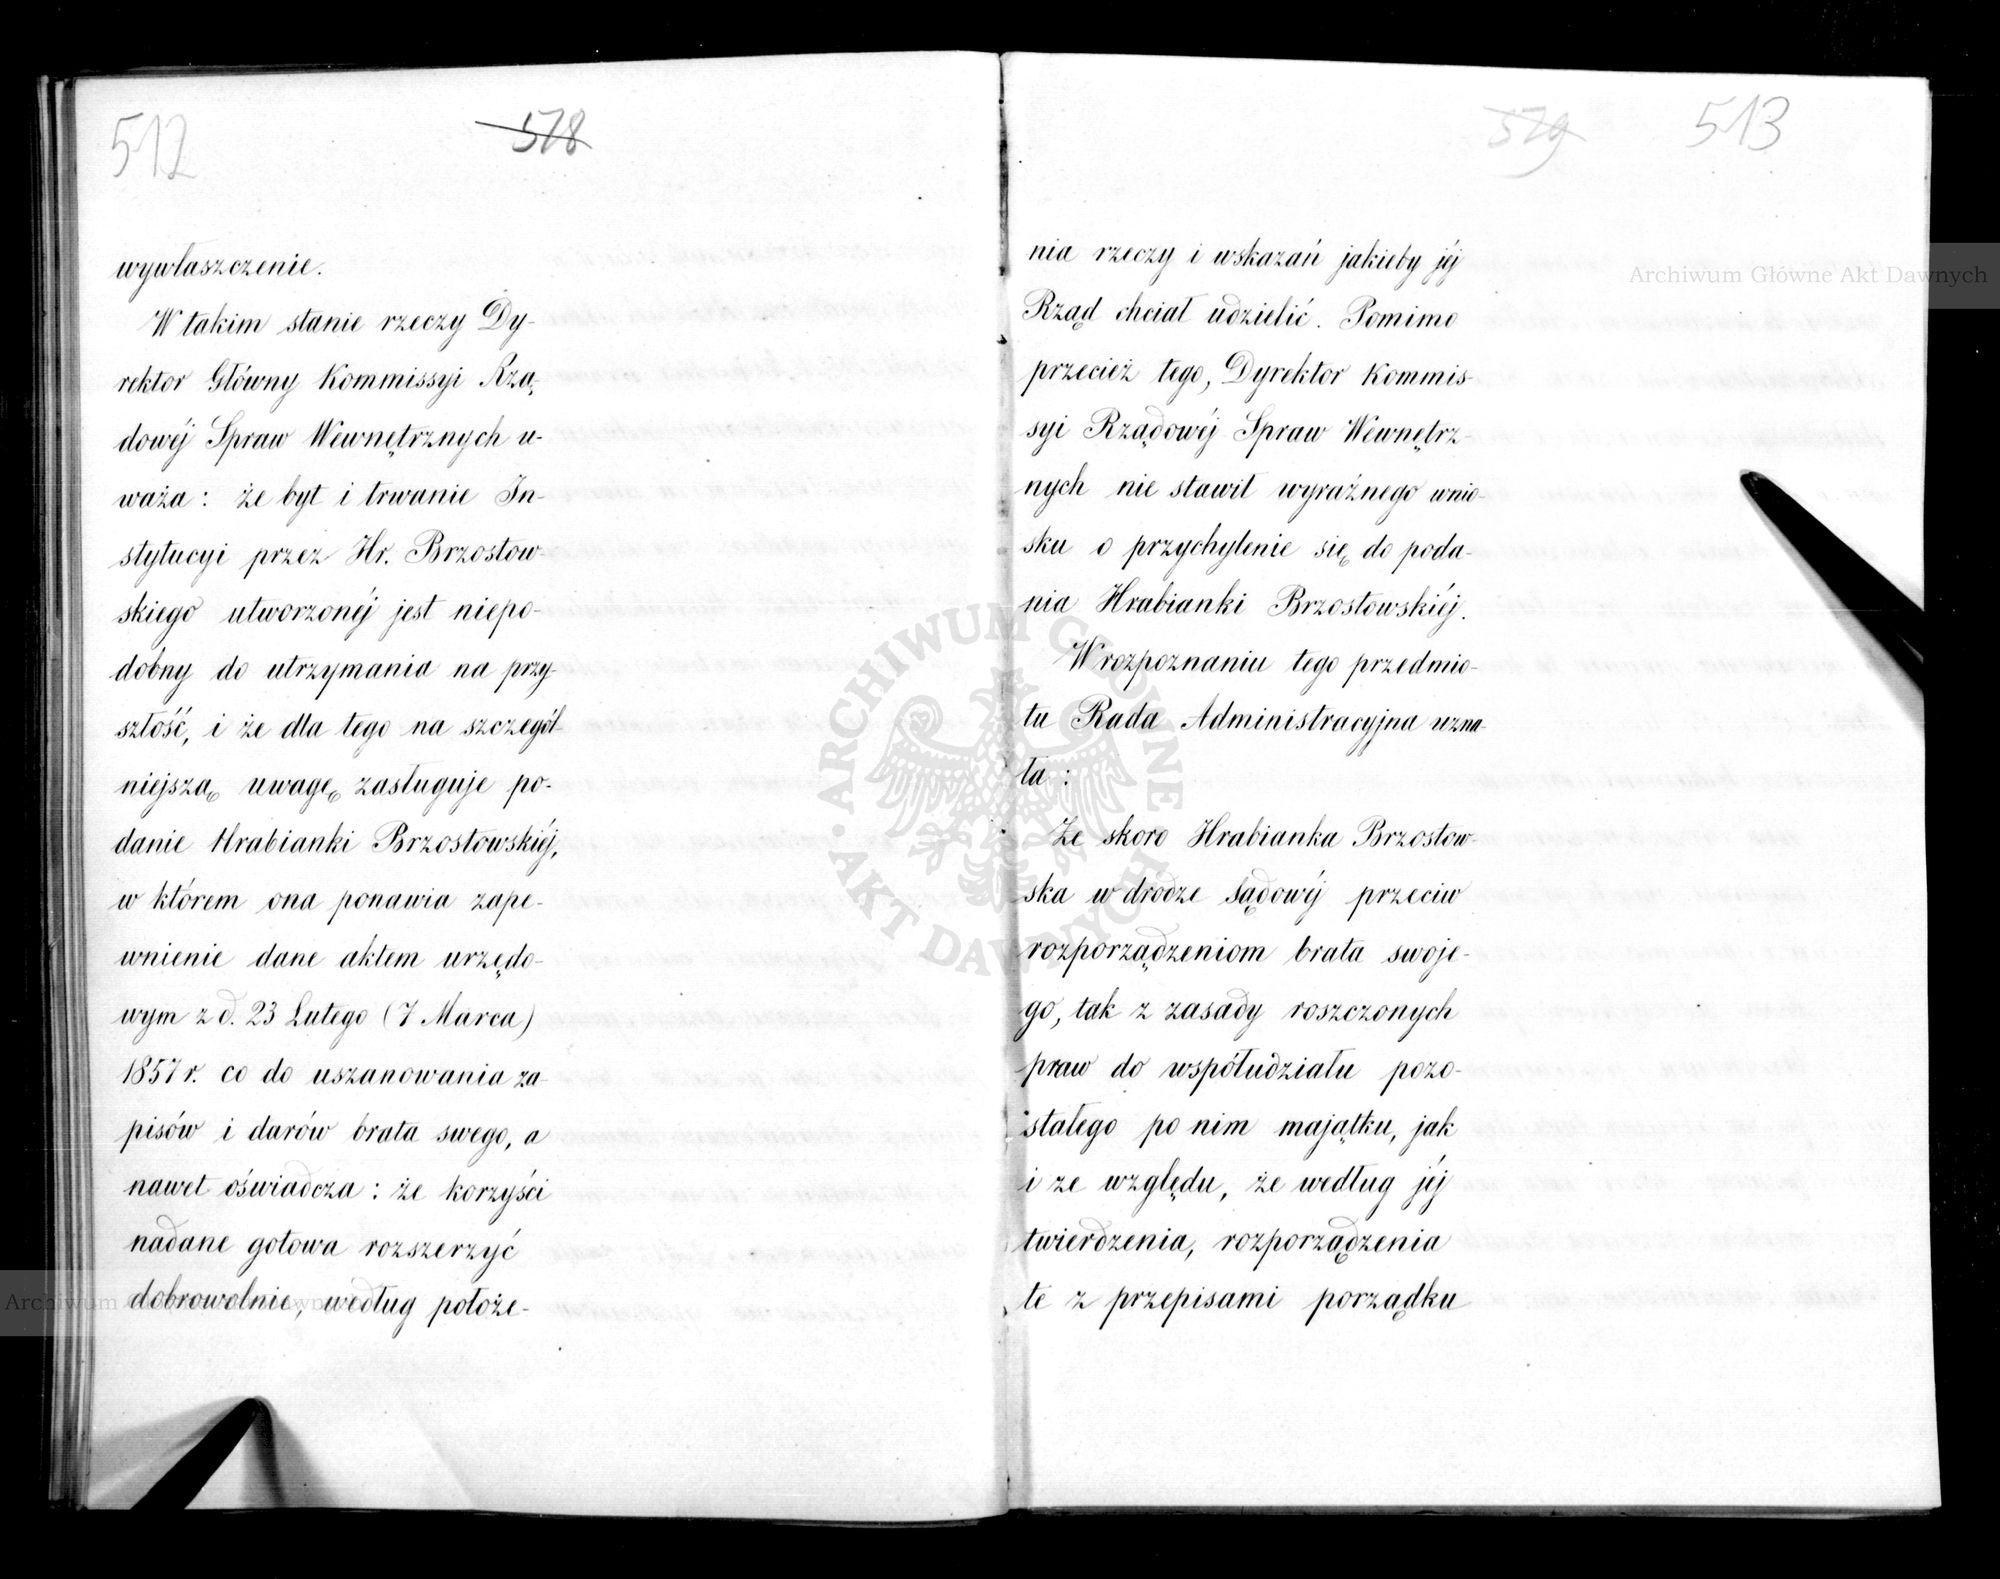 512
578
wywłaszczenie.
W takim stanie rzeczy Dy-
rektor Główny Kommissyi Rzą-
dowéj Spraw Wewnętrznych u-
waża: że byt i trwanie In-
stytucyi przez Hr. Brzostow-
skiego utworzonéj jest niepo-
dobny do utrzymania na przy-
szłość, i że dla tego na szczegól-
niejszą uwagę zasługuje po-
danie Hrabianki Brzostowskiéj,
w którem ona ponawia zape-
wnienie dane aktem urzędo-
wym z d. 23 Lutego (7 Marca)
1857 r. co do uszanowania za-
pisów i darów brata swego, a
nawet oświadcza: że korzyści
nadane gotowa rozszerzyć
dobrowolnie, według położe-
579
513
nia rzeczy i wskazań jakieby jéj
Rząd chciał udzielić. Pomimo
przecież tego, Dyrektor Kommis-
syi Rządowéj Spraw Wewnętrz-
nych nie stawił wyraźnego wnio-
sku o przychylenie się do poda-
nia Hrabianki Brzostowskiéj.
W rozpoznaniu tego przedmio-
tu Rada Administracyjna uzna-
ła:
Że skoro Hrabianka Brzostow-
ska w drodze sądowéj przeciw
rozporządzeniom brata swoje-
go, tak z zasady roszczonych
praw do współudziału pozo-
stałego po nim majątku, jak
i ze względu, że według jéj
twierdzenia, rozporządzenia
te z przepisami porządku
Archiwum Główne Akt Dawnych
Archiwum Główne Akt Dawnych
ARCHIWUM GŁÓWNE AKT DAWNYCH